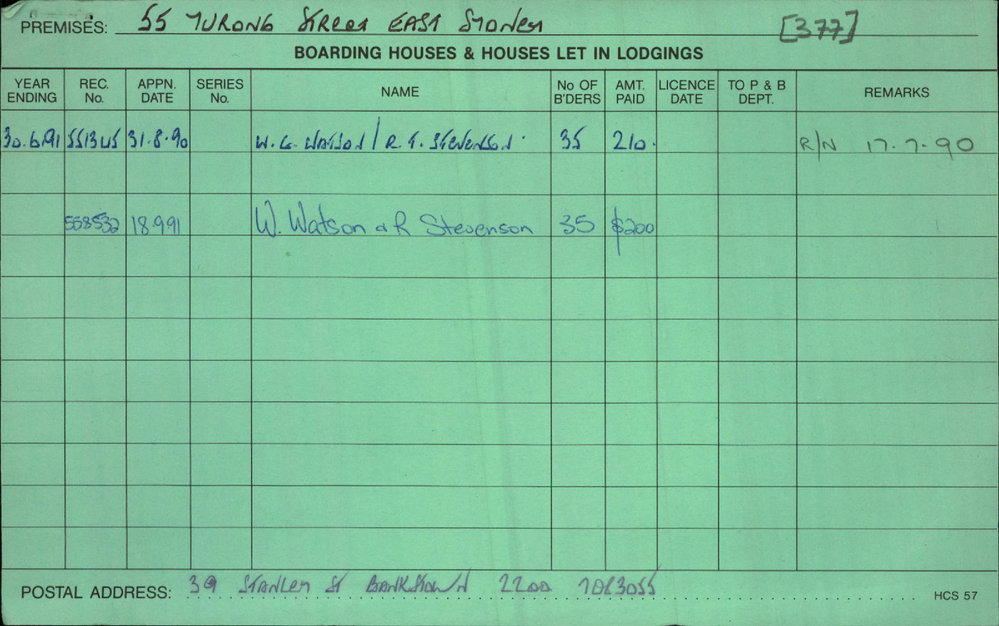 PREMISES: 55 YURONG STREET EAST SYDNEY [377]
BOARDING HOUSES & HOUSES LET IN LODGINGS
YEAR ENDING REC. No. APPN. DATE SERIES No. NAME No OF B'DERS AMT. PAID LICENCE DATE TO P & B DEPT. REMARKS
30.6.91 551345 31.8.90 W. G. WATSON / R. T. STEVENSON 35 210. R/N 17.7.90
558532 18.9.91 W. Watson & R Stevenson 35 $200
POSTAL ADDRESS: 39 STANLEY ST BANKSTOWN 2200 7083055
HCS 57